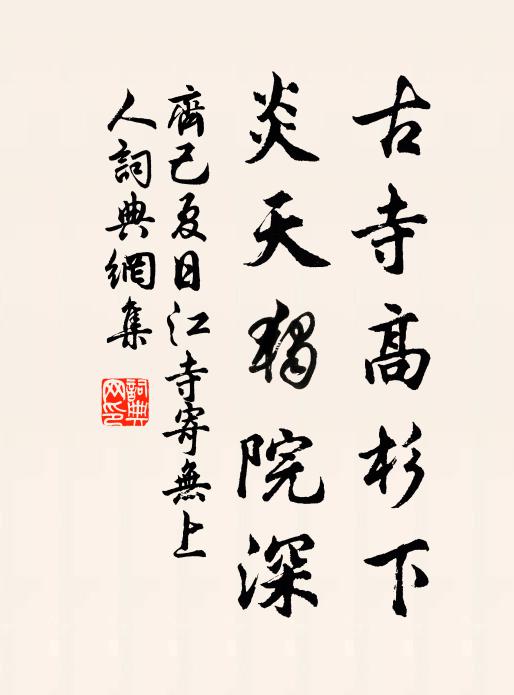 古寺高杉下
炎天獨院深
齊己夏日江寺寄無上
人詞典網集
詞典
网印